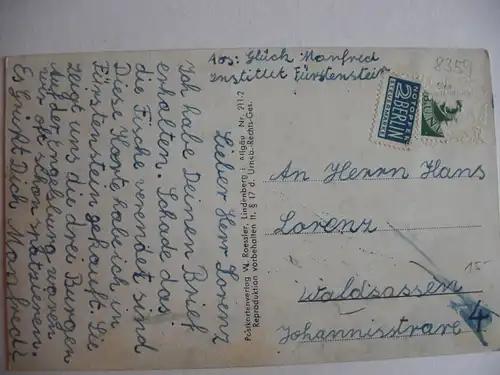 Abs: Glück Manfred
Institut Fürstenstein
8359
Lieber Herr Lorenz
Ich habe Deinen Brief
erhalten. Schade das
die Fische verendet sind
Diese Karte habe ich in
Fürstenstein gekauft. Sie
zeigt uns die drei Burgen
Auf der Engelsburg waren
wir oft schon spatzieren.
Es grüßt Dich Manfred
Postkartenverlag W. Roessler, Lindenberg i. Allgäu Nr. 211/2
Reproduktion vorbehalten lt. § 17 d. Urheb.-Rechts-Ges.
NOTOPFER
2 BERLIN
STEUERMARKE
An Herrn Hans
Lorenz
Waldsassen
Johannisstrare 4
15-